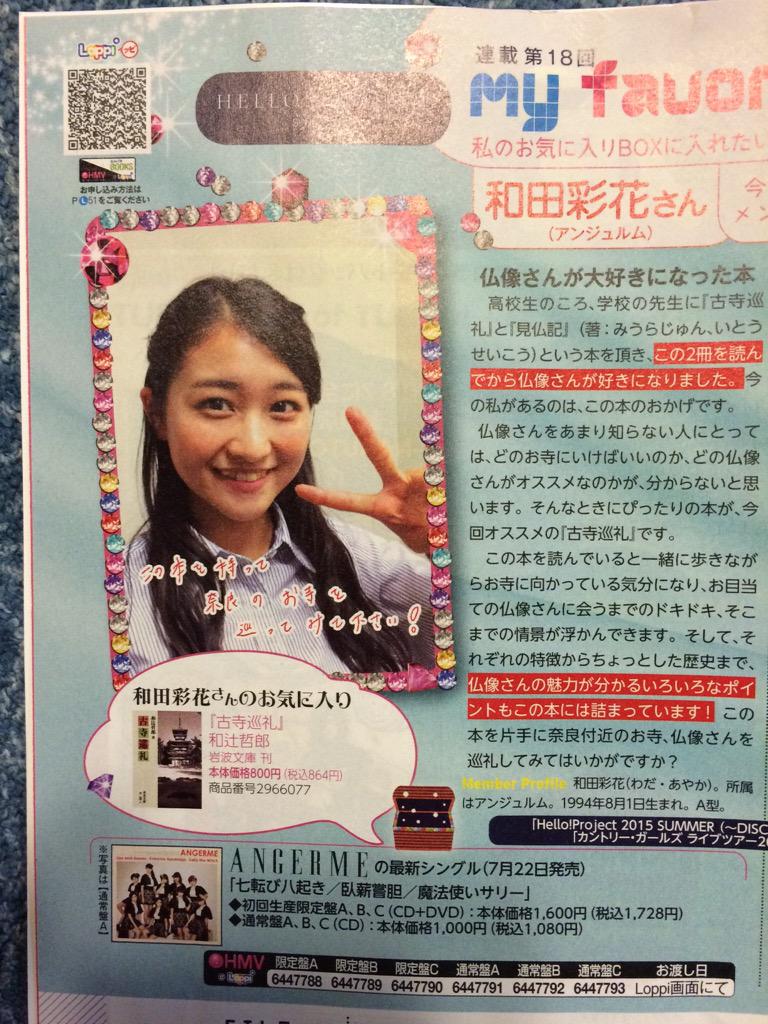 Loppi ロッピ
HMV
BOOKS
お申し込み方法は
P L51をご覧ください
HELLO
連載 第18回
my favor
私のお気に入りBOXに入れたい
和田彩花さん
(アンジュルム)
今
メン
仏像さんが大好きになった本
高校生のころ、学校の先生に『古寺巡
礼』と『見仏記』(著：みうらじゅん、いとう
せいこう)という本を頂き、この2冊を読ん
でから仏像さんが好きになりました。今
の私があるのは、この本のおかげです。
仏像さんをあまり知らない人にとって
は、どのお寺にいけばいいのか、どの仏像
さんがオススメなのかが、分からないと思
います。そんなときにぴったりの本が、今
回オススメの『古寺巡礼』です。
この本を読んでいると一緒に歩きなが
らお寺に向かっている気分になり、お目当
ての仏像さんに会うまでのドキドキ、そこ
までの情景が浮かんできます。そして、そ
れぞれの特徴からちょっとした歴史まで、
仏像さんの魅力が分かるいろいろなポイ
ントもこの本には詰まっています！この
本を片手に奈良付近のお寺、仏像さんを
巡礼してみてはいかがですか？
Member Profile 和田彩花(わだ・あやか)。所属
はアンジュルム。1994年8月1日生まれ。A型。
この本を持って
奈良のお寺を
巡ってみて下さい！
和田彩花さんのお気に入り
古寺巡礼
『古寺巡礼』
和辻哲郎
岩波文庫 刊
本体価格800円(税込864円)
商品番号2966077
「Hello!Project 2015 SUMMER (〜DISC
「カントリー・ガールズ ライブツアー20
※写真は【通常盤A】
ANGERME
ANGERMEの最新シングル(7月22日発売)
「七転び八起き／臥薪嘗胆／魔法使いサリー」
◆初回生産限定盤A、B、C(CD+DVD)：本体価格1,600円(税込1,728円)
◆通常盤A、B、C(CD)：本体価格1,000円(税込1,080円)
HMV 限定盤A 限定盤B 限定盤C 通常盤A 通常盤B 通常盤C お渡し日
Loppi 6447788 6447789 6447790 6447791 6447792 6447793 Loppi画面にて